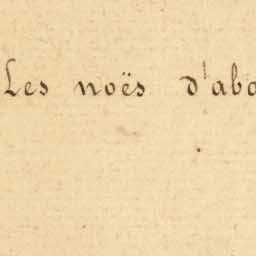 Les noës d'abo